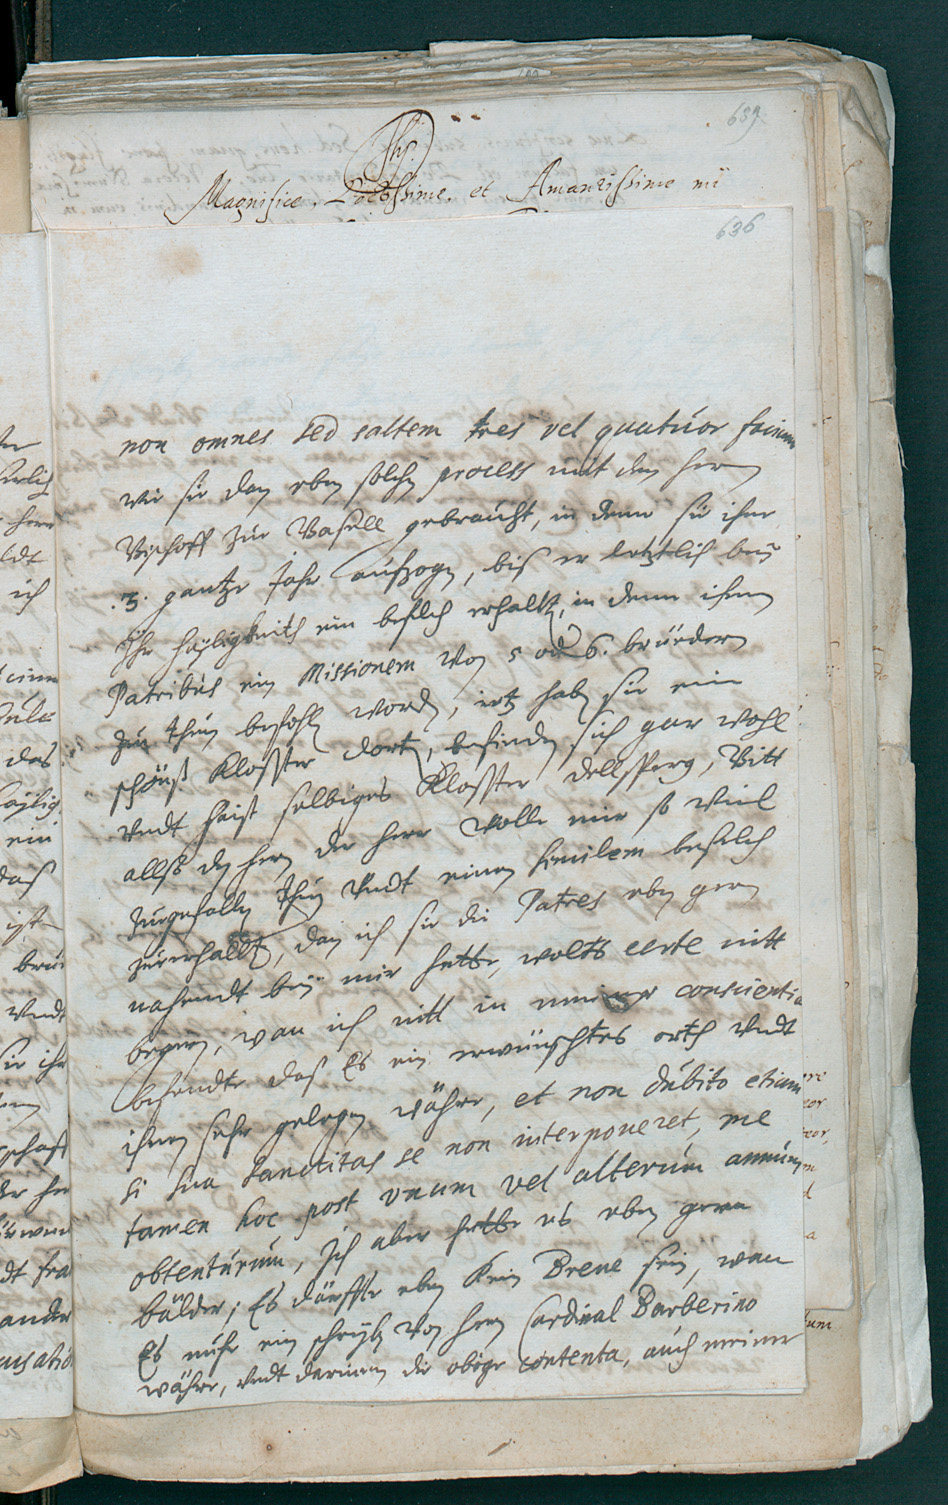 689
Jhs.
Magnifice, Doctissime, et Amantissime mi
636
non omnes sed saltem tres vel quatuor
wie sie dan eben solchen process mit dem herrn
Bischoff zue Basell gebraucht, in deme sie ihne
.3. gantze Jahr aufzogen, biß er letztlich bey
Ihr Häyligkeith ein befelch erhalten, in deme ihnen
Patribus ein Missionem von 5 od 6. brüedern
zue thun befohlen worden, ietz haben sie ein
schönß Kloster dorten, befinden sich gar wohl
undt haist selbiges Kloster Dellsperg, Bitt
allso den herrn der herr wolle mir so viel
zuegefallen thuen undt einen similem befelch
zuerhalten, dan ich sie die Patres eben gern
nahendt bey mir hette, wolts aber nitt
begeren, wan ich nitt in meiner conscientia
befendte daß Es ein erwünschtes orth undt
ihnen sehr gelegen währe, et non dúbito etiam
si sua Sanctitas se non interponeret, me
tamen hoc post vnum vel alterúm annúm
obtentúrúm, Ich aber hette es eben geren
bälder; Es därffte eben kein Breve sein, wan
Es nuhr ein schryben von herrn Cardinal Barberino
währe, undt darinnen die obige contenta, auch meiner